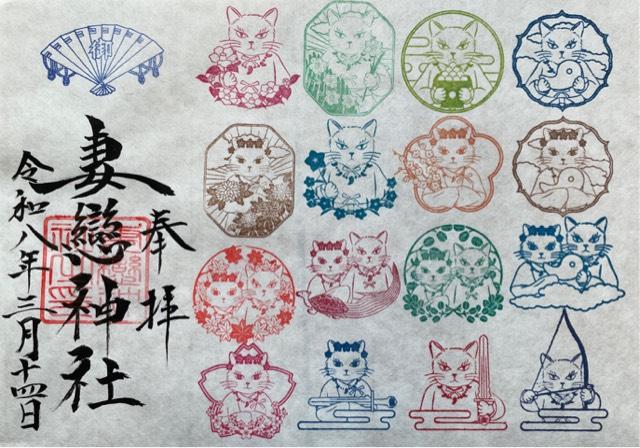 奉拝
妻戀神社
令和八年三月十四日